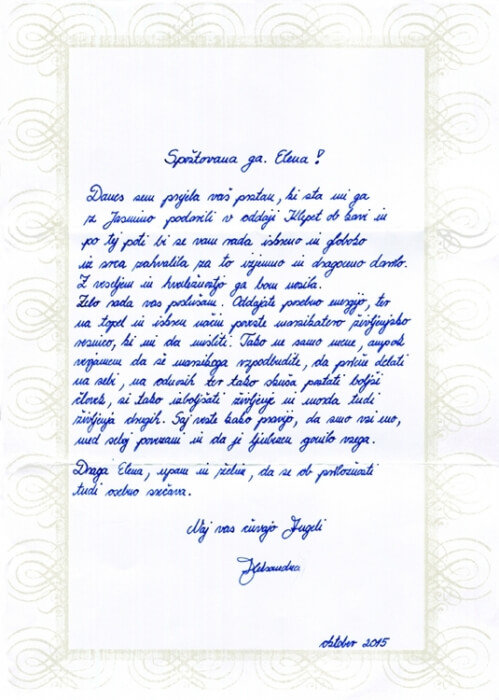 Spoštovana ga. Elena!
Danes sem prejela vaš prstan, ki sta mi ga
z Jasmino podarili v oddaji Klepet ob kavi in
po tej poti bi se vam rada iskreno in globoko
iz srca zahvalila za to izjemno in dragoceno darilo.
Z veseljem in hvaležnostjo ga bom nosila.
Zelo rada vas poslušam. Oddajate posebno energijo, ter
na topel in iskren način poveste marsikatero življenjsko
resnico, ki mi da misliti. Tako ne samo mene, ampak
verjamem da še marsikoga vzpodbudite, da prične delati
na sebi, na odnosih ter tako skuša postati boljši
človek, si tako izboljšati življenje in morda tudi
življenja drugih. Saj veste kako pravijo, da smo vsi eno,
med seboj povezani in da je ljubezen gonilo vsega.
Draga Elena, upam in želim, da se ob priložnosti
tudi osebno srečava.
Naj vas čuvajo Angeli
Aleksandra
oktober 2015